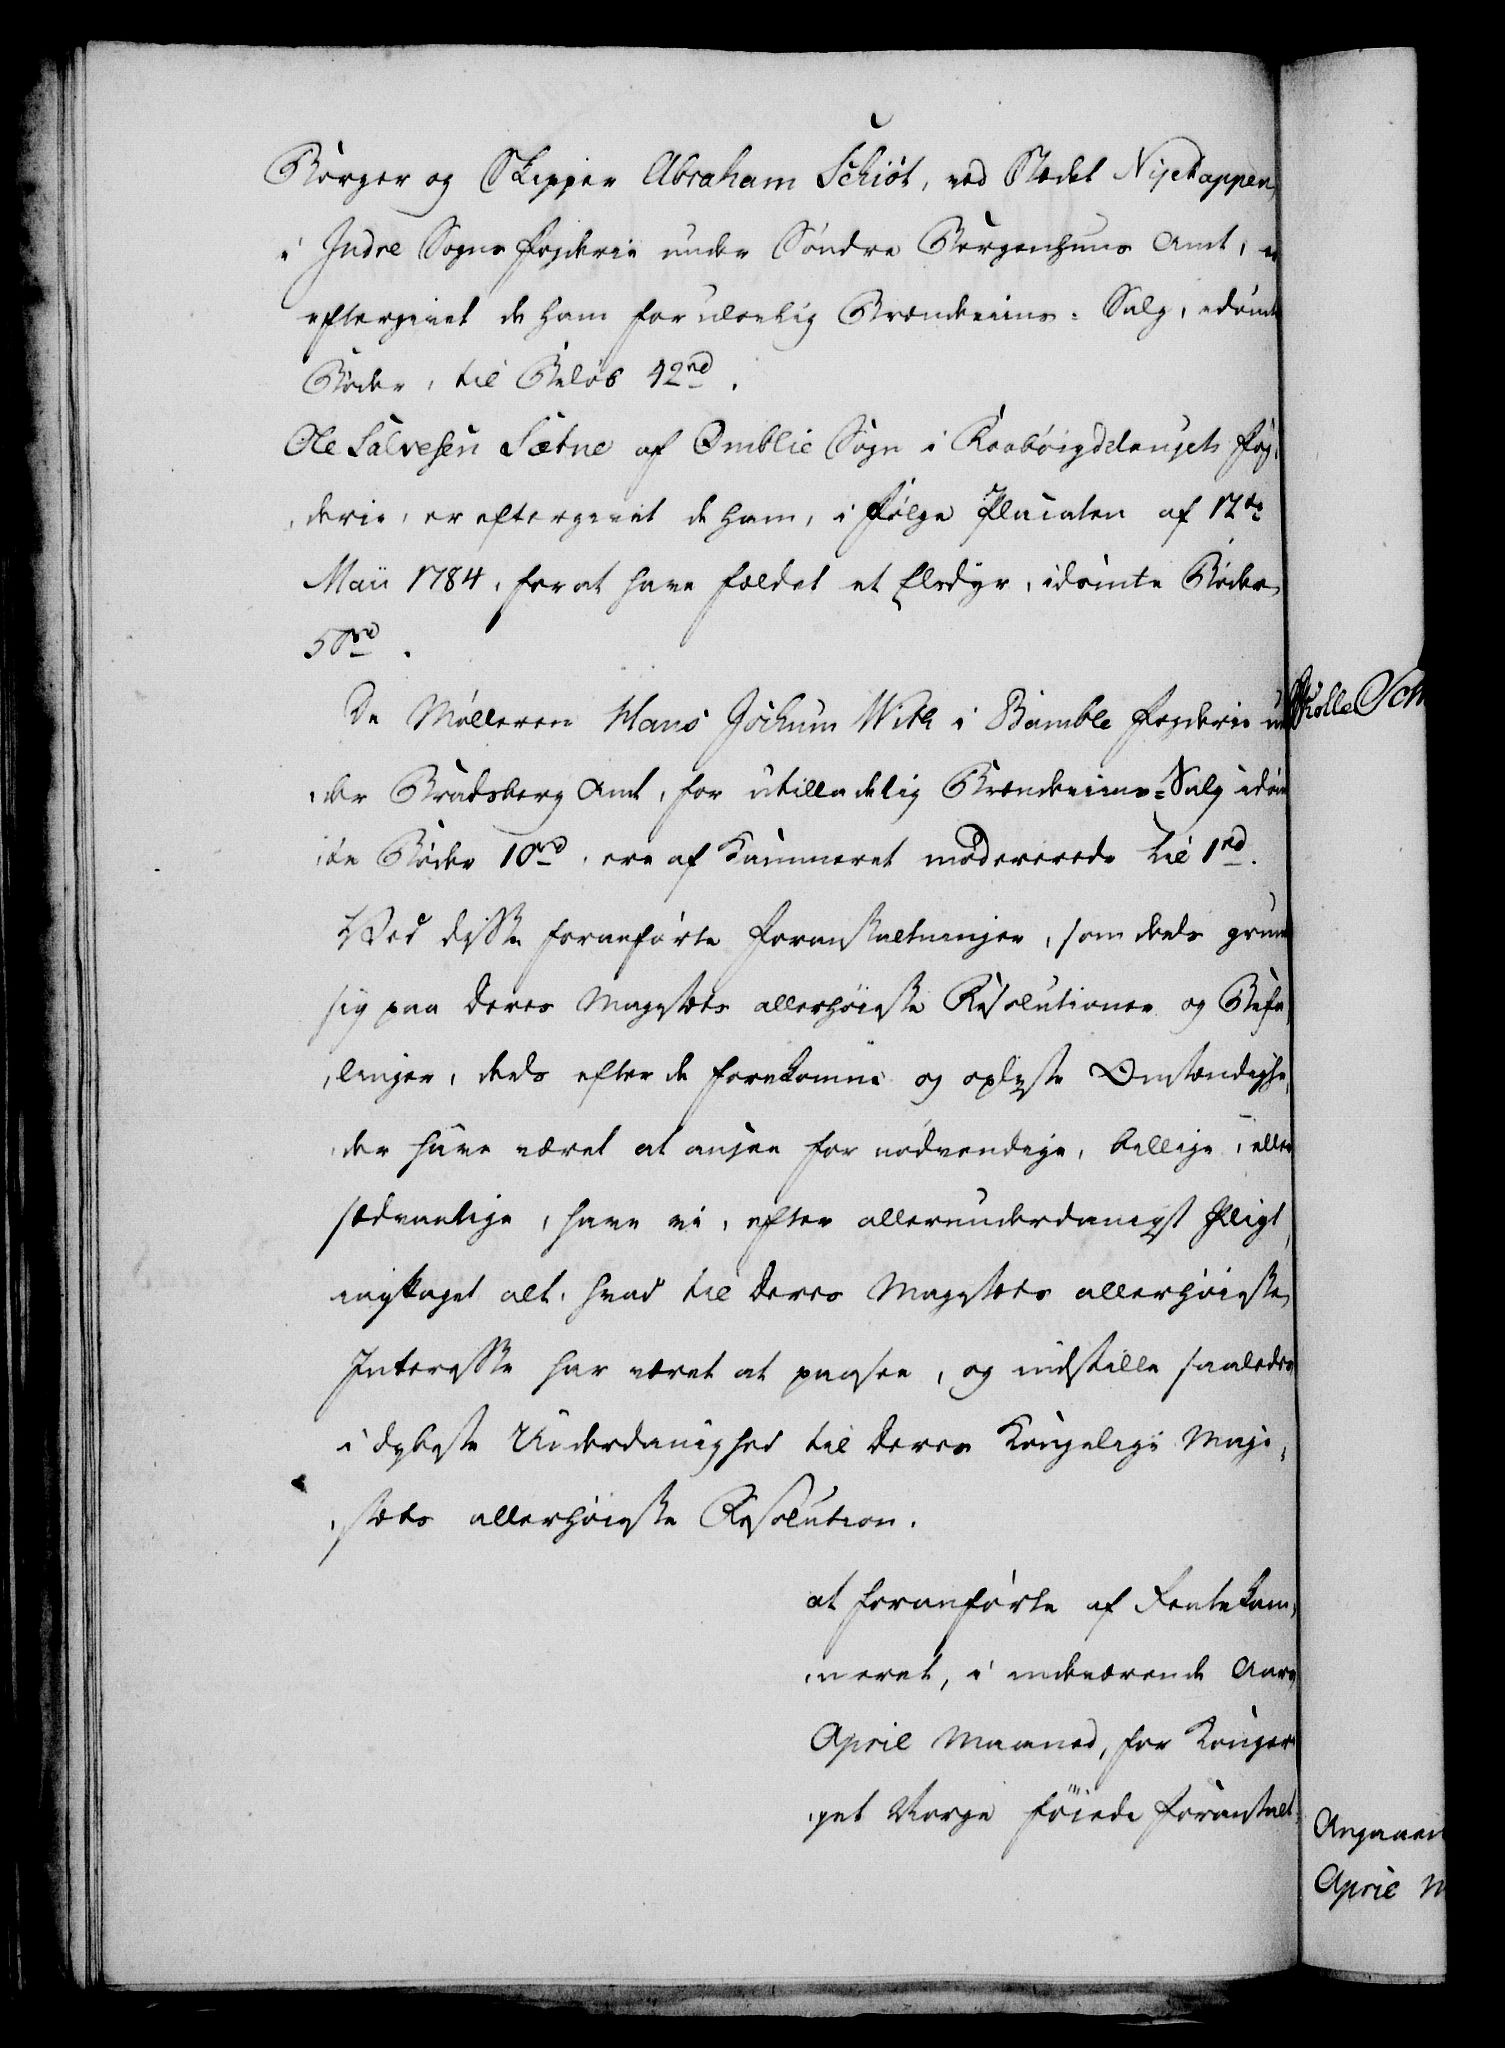 Borger og Skipper Abraham Schiöt, ved Stædet Nyekappen,
i Indre Sogns Fogderie under Søndre Bergenhuus Amt, er
eftergivet de ham for ulovlig Brændeviins-Salg, idömte
Böder, til Beløb 42 rd.
Ole Salvesen Sætne af Omblie Sogn i Raabøigdelaugets Fog-
derie, er eftergivet de ham, i Følge Placaten af 12te
Maii 1784, for at have fældet et Elsdyr, idömte Böder
50 rd.
De Mølleren Hans Jochum With i Bamble Fogderie un-
der Bradsberg Amt, for utilladelig Brændeviins-Salg idöm-
te Böder 10 rd, ere af Kammeret modererede til 1 rd.
Ved disse foranførte Foranstaltninger, som deels grunde
sig paa Deres Majestæts allerhøieste Resolutioner og Befa-
linger, deels efter de forekomne og oplyste Omstændighe-
der have været at ansee for nødvendige, billige, eller
sædvanlige, have vi, efter allerunderdanigst Pligt,
iagttaget alt, hvad til Deres Majestæts allerhøieste
Interesse har været at paasee, og indstille saaledes
i dybeste Underdanighed til Deres Kongelige Maje-
stæts allerhøieste Resolution.
at foranførte af Rentekam-
meret, i indeværende Aars
April Maaned, for Konge-
get Norge föiede Foranstalt-
Angaaen
April M